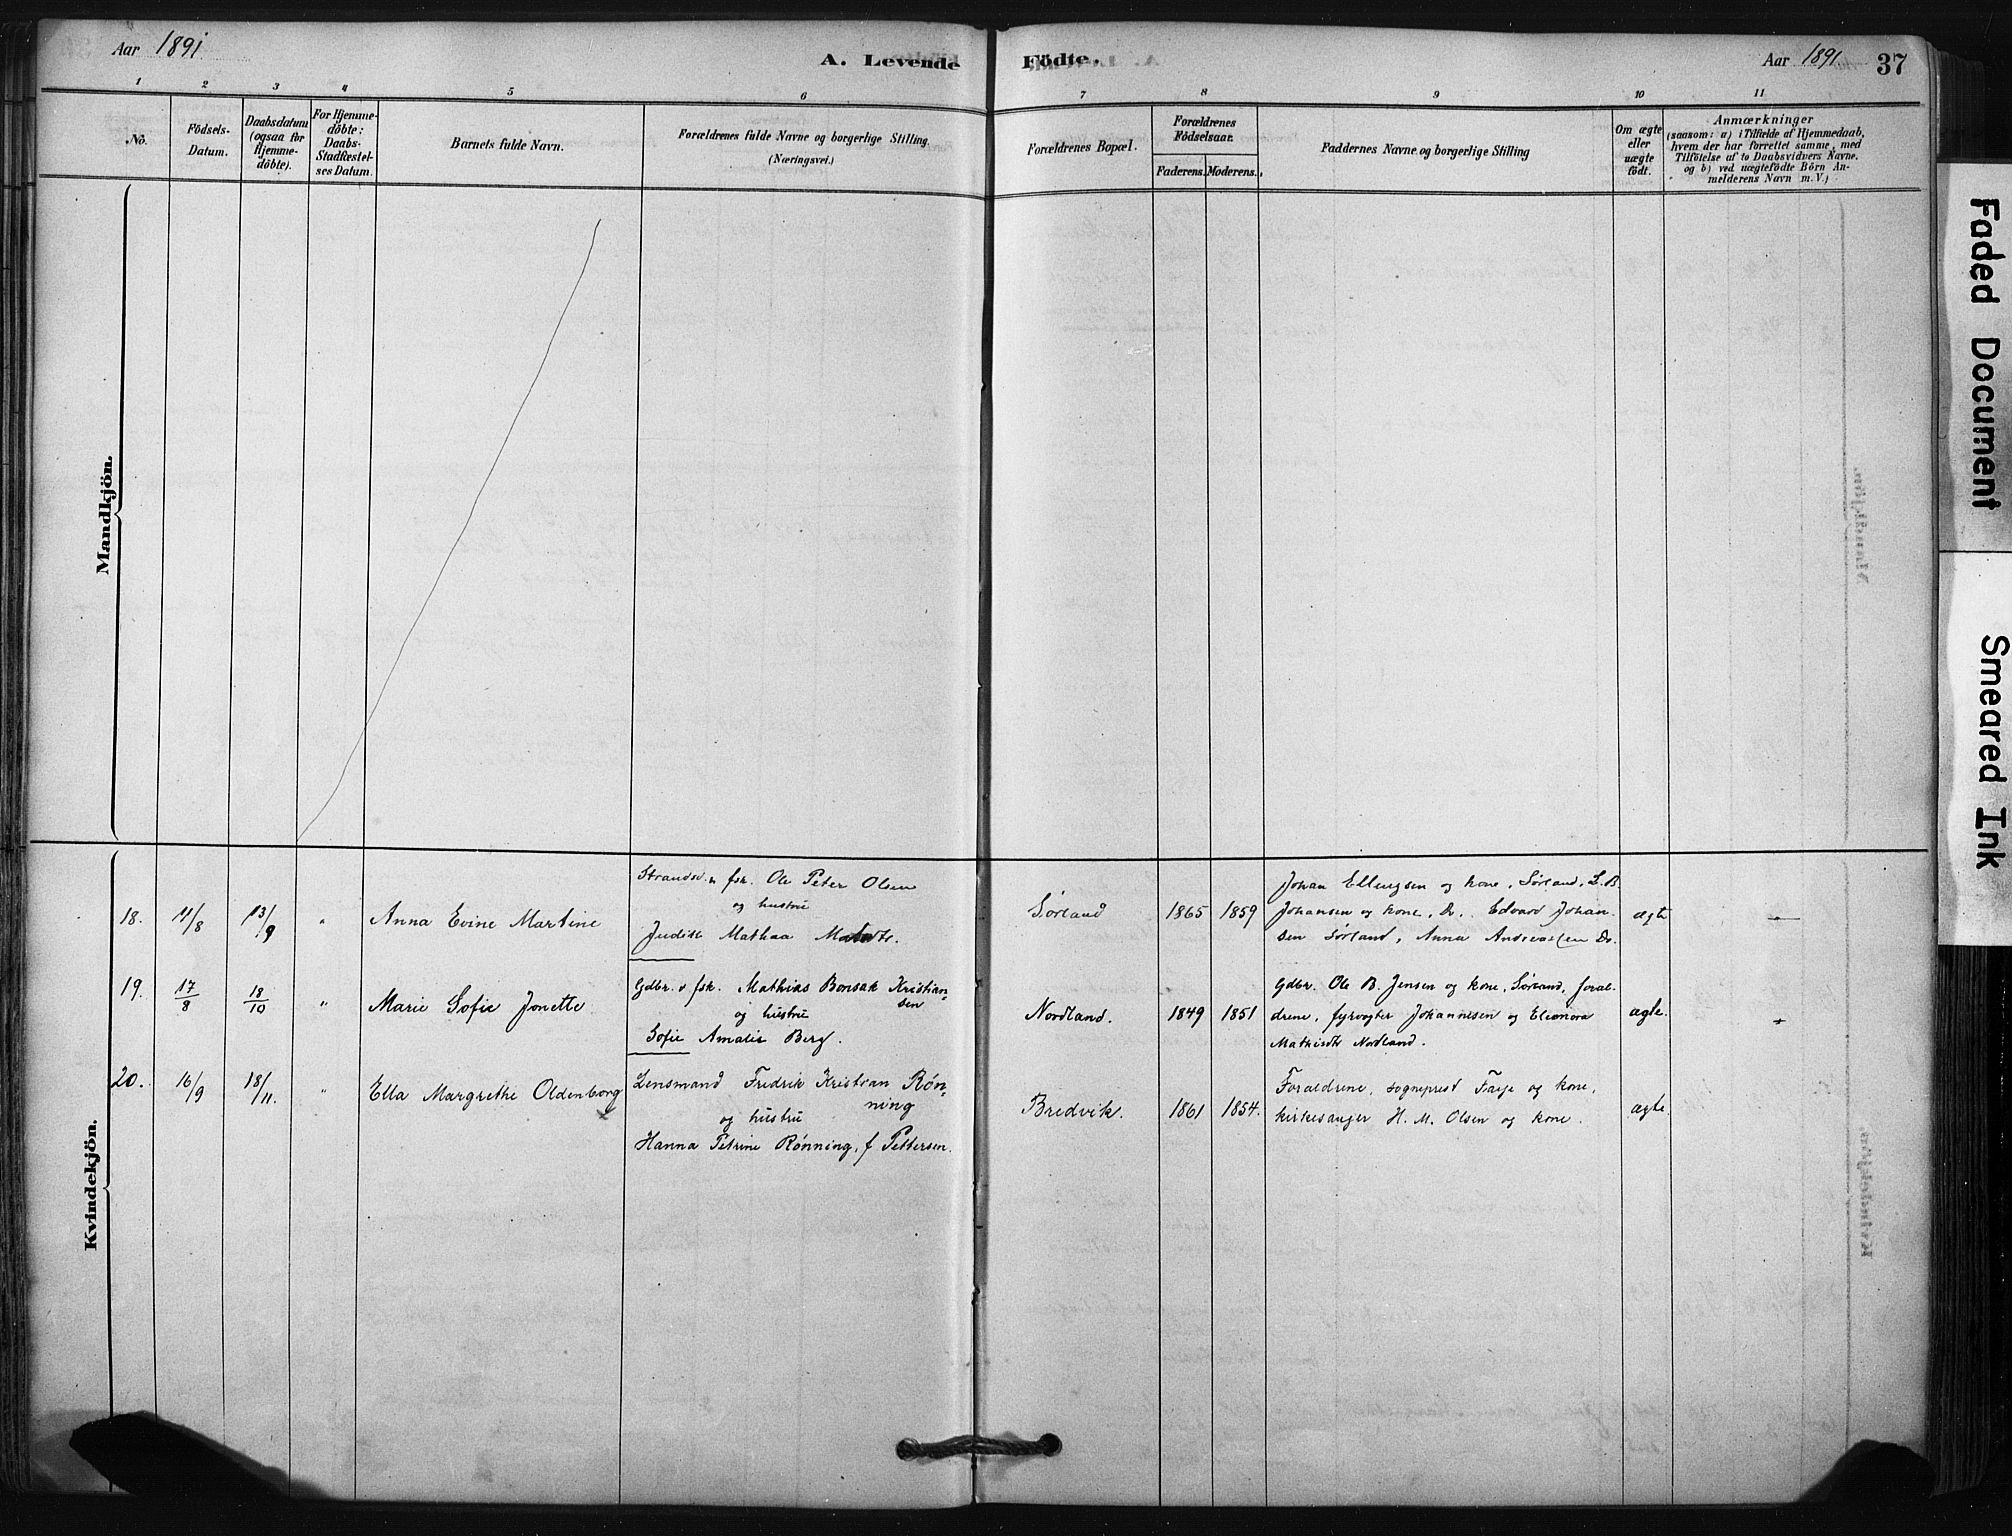 Aar 1891
A. Levende Födte.
Aar 1891.
37
1 2 3 4 5 6 7 8 9 10 11
No.
Födsels-
Datum.
Daabsdatum
(ogsaa for
Hjemme-
döbte).
For Hjemme-
döbte:
Daabs-
Stadfæstel-
ses Datum.
Barnets fulde Navn.
Forældrenes fulde Navne og borgerlige Stilling.
(Næringsvei.)
Forældrenes Bopæl.
Forældrenes
Födselsaar.
Faderens. Moderens.
Faddernes Navne og borgerlige Stilling
Om ægte
eller
uægte
födt.
Anmærkninger
(saasom: a) i Tilfælde af Hjemmedaab,
hvem der har forrettet samme, med
Tilföielse af to Daabsvidners Navne.
og b) ved uægtefödte Börn An-
melderens Navn m. V.)
Mandkjön.
Kvindekjön.
18. 11/8 13/9 " Anna Evine Martine
Strands. & fsk. Ole Peter Olsen
og hustru
Judith Mathea
Sørland 1865 1859
Johan Ellingsen og kone, Sørland, L. B.
Johansen og kone, Do. Edvard Johan-
sen Sørland, Anna Andreassen Do.
ægte
19. 17/8 18/10 " Marie Sofie Jonette
Gdbr. & fsk. Mathias Bonsak Kristian-
sen
og hustru
Sofie Amalie Berg.
Nordland. 1849 1851
Gdbr. Ole B. Jensen og kone, Sørland, foræl-
drene, fyrvogter Johannesen og Eleonora
Mathisdtr Nordland.
ægte.
20. 16/9 18/11. " Ella Margrethe Oldenborg
Lensmand Fredrik Kristian Røn-
ning
og hustru
Hanna Petrine Rønning, f Pettersen.
Bredvik. 1861 1854.
Forældrene, sogneprest Faye og kone,
kirkesanger H. M. Olsen og kone.
ægte.
Faded Document
Smeared Ink